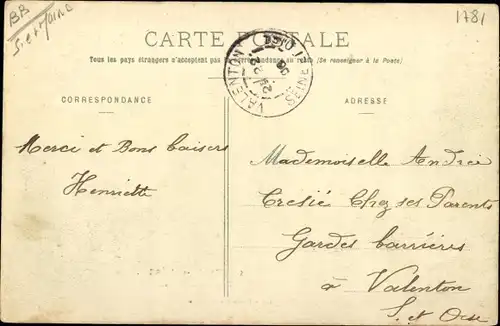 BB
S. et Marne
1781
CARTE POSTALE
Tous les pays étrangers n'acceptent pas la correspondance au recto (Se renseigner à la Poste)
VALENTON
SEINE
CORRESPONDANCE
ADRESSE
Merci et Bons baisers
Henriette
Mademoiselle Andrée
Cresié Chez ses Parents
Gardes barrières
à Valenton
S. et Oise